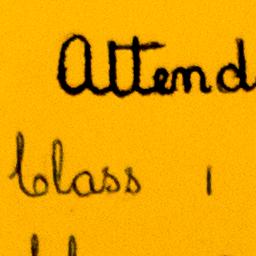 Attend
Class 1